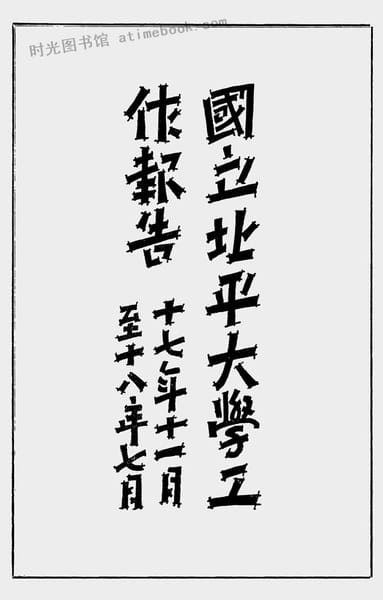 时光图书馆 atimebook.com
國立北平大學工
作報告
十七年十一月
至十八年七月